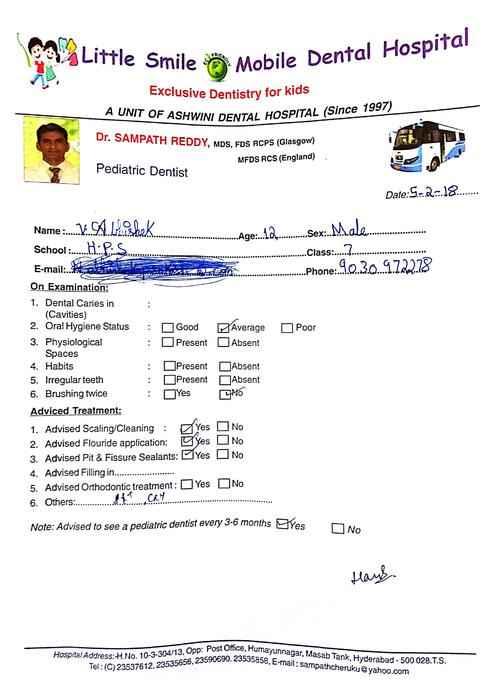 Little Smile Mobile Dental Hospital
Exclusive Dentistry for kids
A UNIT OF ASHWINI DENTAL HOSPITAL (Since 1997)
Dr. SAMPATH REDDY, MDS, FDS RCPS (Glasgow)
MFDS RCS (England)
Pediatric Dentist
Date: 5-2-18
Name: V. Abhishek Age: 12 Sex: Male
School: H.P.S Class: 7
E-mail: Phone: 9030 972278
On Examination:
1. Dental Caries in :
(Cavities)
2. Oral Hygiene Status : Good Average Poor
3. Physiological : Present Absent
Spaces
4. Habits : Present Absent
5. Irregular teeth : Present Absent
6. Brushing twice : Yes No
Adviced Treatment:
1. Advised Scaling/Cleaning : Yes No
2. Advised Flouride application: Yes No
3. Advised Pit & Fissure Sealants: Yes No
4. Advised Filling in
5. Advised Orthodontic treatment: Yes No
6. Others:
Note: Advised to see a pediatric dentist every 3-6 months Yes No
Hospital Address:-H.No. 10-3-304/13, Opp: Post Office, Humayunnagar, Masab Tank, Hyderabad - 500 028.T.S.
Tel: (C) 23537612, 23535656, 23590690. 23535858, E-mail: sampathcheruku@yahoo.com